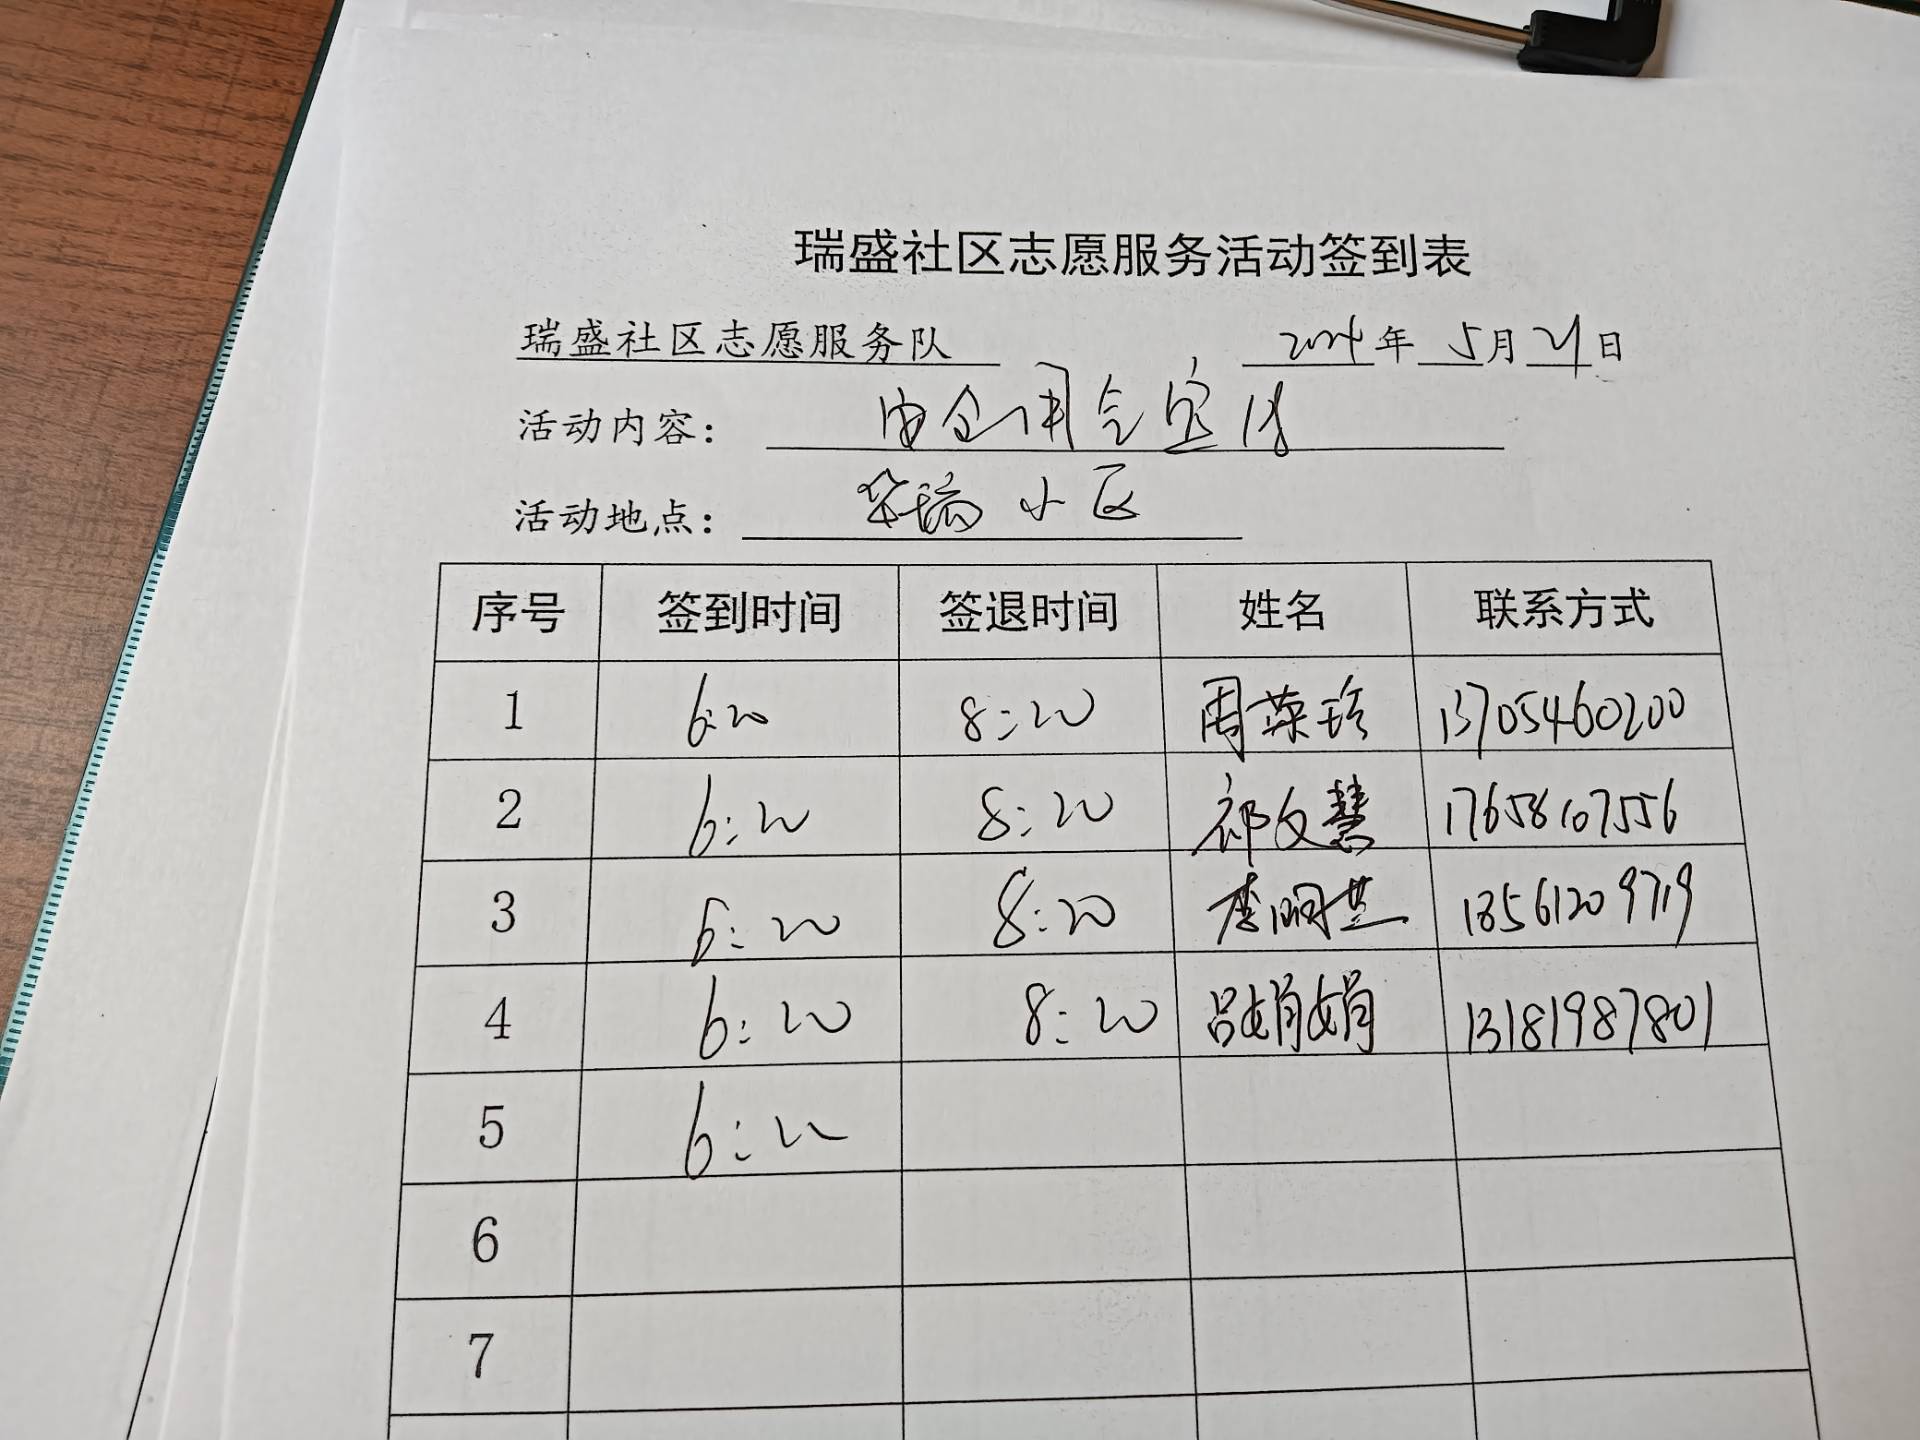 瑞盛社区志愿服务活动签到表
瑞盛社区志愿服务队 2024年 5月 21日
活动内容： 安全用气宣传
活动地点： 华瑞小区
序号 签到时间 签退时间 姓名 联系方式
1 6:20 8:20 周荣珍 13705460200
2 6:20 8:20 祁文慧 17658107556
3 6:20 8:20 李明兰 18561209719
4 6:20 8:20 吕娟娟 13181987801
5 6:20
6
7